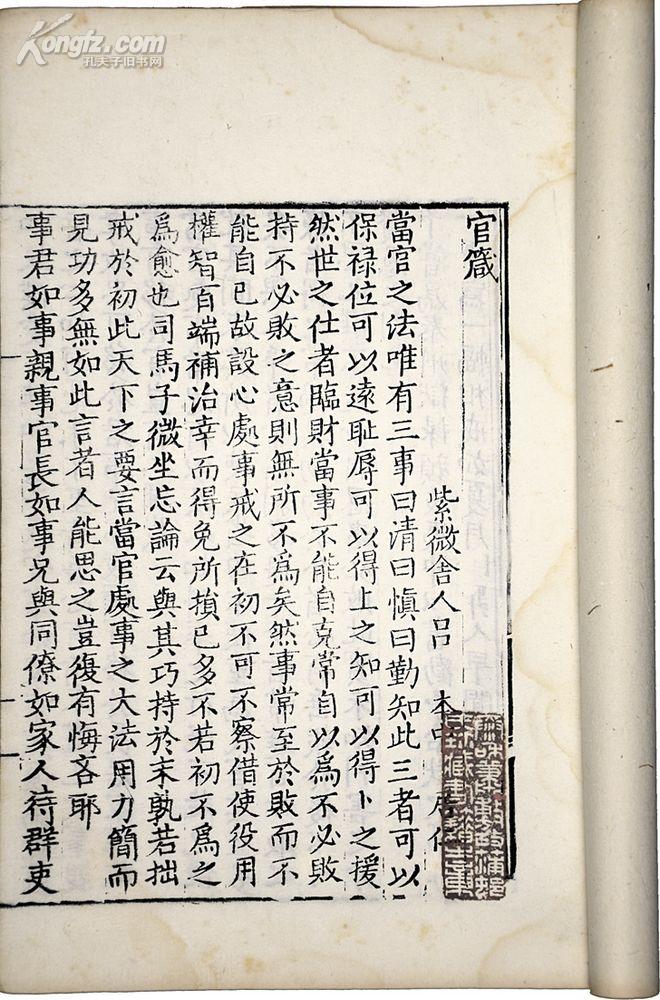 Kongfz.com
孔夫子旧书网
官箴
紫微舍人吕 本中 居仁
當官之法唯有三事曰清曰慎曰勤知此三者可以
保禄位可以遠恥辱可以得上之知可以得卜之援
然世之仕者臨財當事不能自克常自以為不必敗
持不必敗之意則無所不為矣然事常至於敗而不
能自已故設心處事戒之在初不可不察借使役用
權智百端補治幸而得免所損已多不若初不為之
為愈也司馬子微坐忘論云與其巧持於末孰若拙
戒於初此天下之要言當官處事之大法用力簡而
見功多無如此言者人能思之豈復有悔吝耶
事君如事親事官長如事兄與同僚如家人待群吏